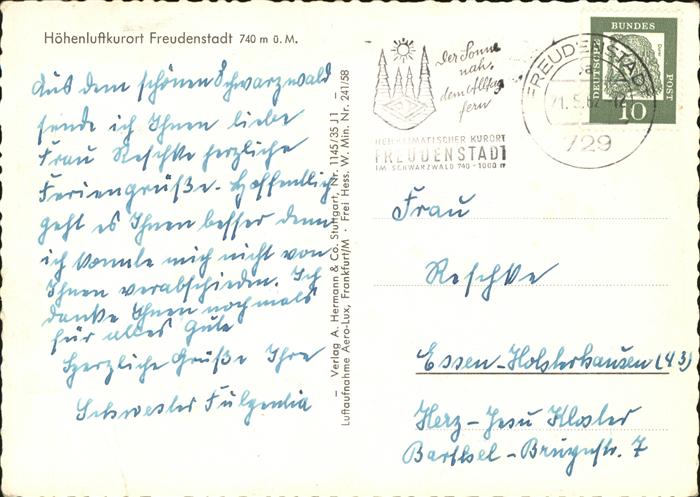 Höhenluftkurort Freudenstadt 740 m ü. M.
Aus dem schönen Schwarzwald
sende ich Ihnen liebe
Frau Reschke herzliche
Feriengrüße. Hoffentlich
geht es Ihnen besser denn
ich konnte mich nicht von
Ihnen verabschieden. Ich
danke Ihnen nochmals
für alles Gute
Herzliche Grüße Ihre
Schwester Fulgentia
— Verlag A. Hermann & Co. Stuttgart, Nr. 1145/35 J1 —
Luftaufnahme Aero-Lux, Frankfurt/M · Frei Hess. W. Min. Nr. 241/58
Der Sonne
nah,
dem Alltag
fern
HEILKLIMATISCHER KURORT
FREUDENSTADT
IM SCHWARZWALD 740-1000 m
FREUDENSTADT
a
729
DEUTSCHE
BUNDES
POST
10
Frau
Reschke
Essen-Holsterhausen (43)
Herz-Jesu Kloster
Barthel-Bruynstr. 7